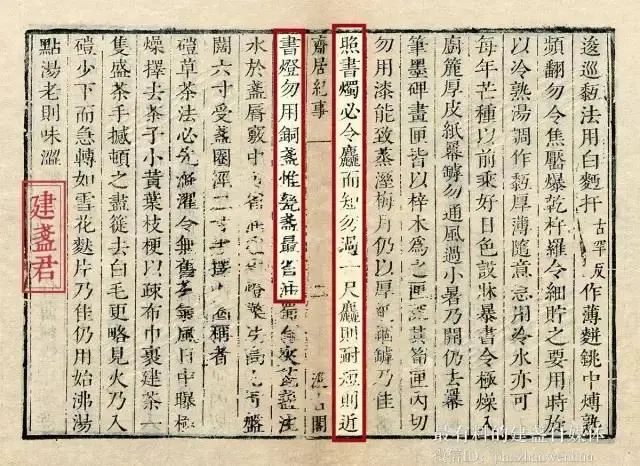 逡巡黏法用白麵扞古旱反作薄麪銚中煿熟
頻翻勿令焦黶爆乾杵羅令細貯之要用時旋
以冷熱湯調作黏厚薄隨意忌用冷水亦可
每年芒種以前乘好日色設牀暴書令極燥
廚簏厚皮紙羃罅勿通風過小暑乃開仍去羃
筆墨硯畫匣皆以梓木為之匣匣內切
勿用漆能致蒸溼梅月仍以厚紙罅乃佳
照書燭必令麤而短勿過一尺麤則耐短則近
齋居紀事
二
閣
書燈勿用銅盞惟甆盞最省油甆盞注
水於盞脣竅中盤
闊六寸受盞圈徑二寸稱者
磑草茶法必先滌磑令無舊茶無風日中曝極
燥擇去茶子小黃葉枝梗以疎布巾裹建茶一
隻盛茶手撼頓之盡篵去白毛更略見火乃入
磑少下而急轉如雪花麩片乃佳仍用始沸湯
點湯老則味澀
建盞君
最有料的建盞自媒体